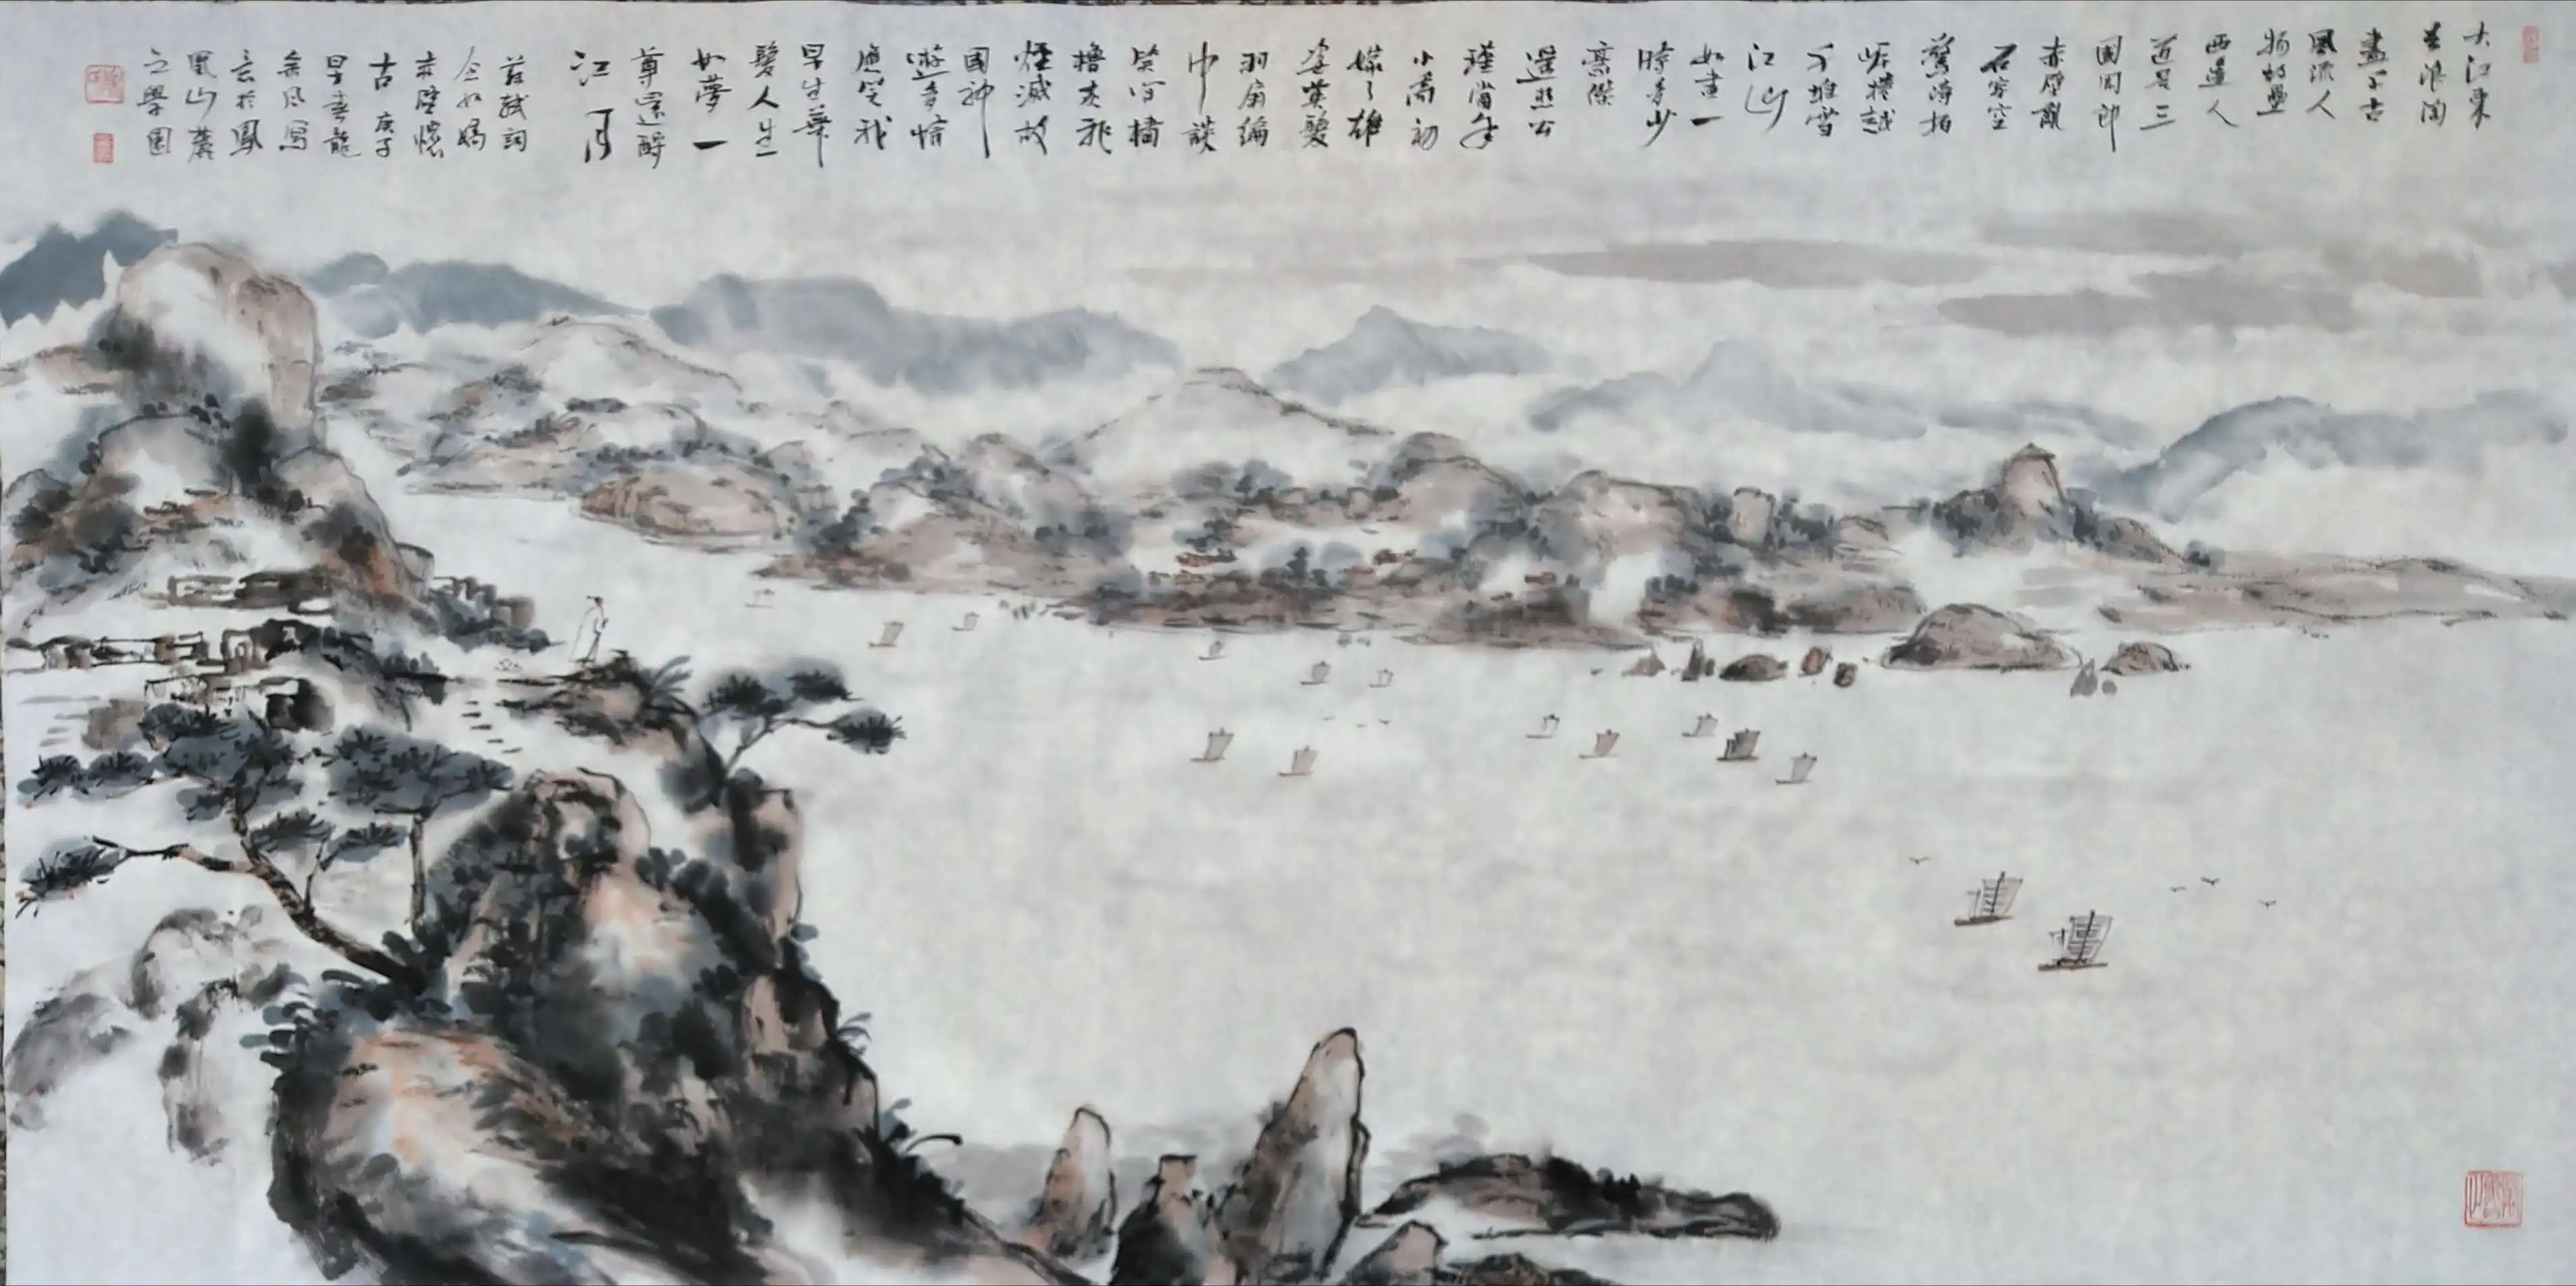 大江東
去浪淘
盡千古
風流人
物故壘
西邊人
道是三
國周郎
赤壁亂
石穿空
驚濤拍
岸捲起
千堆雪
江山
如畫一
時多少
豪傑
遙想公
瑾當年
小喬初
嫁了雄
姿英發
羽扇綸
巾談
笑間檣
櫓灰飛
煙滅故
國神
遊多情
應笑我
早生華
髮人生
如夢一
尊還酹
江月
蘇軾詞
念奴嬌
赤壁懷
古 庚子
早春龍
寫
於鳳
凰山麓
之學園